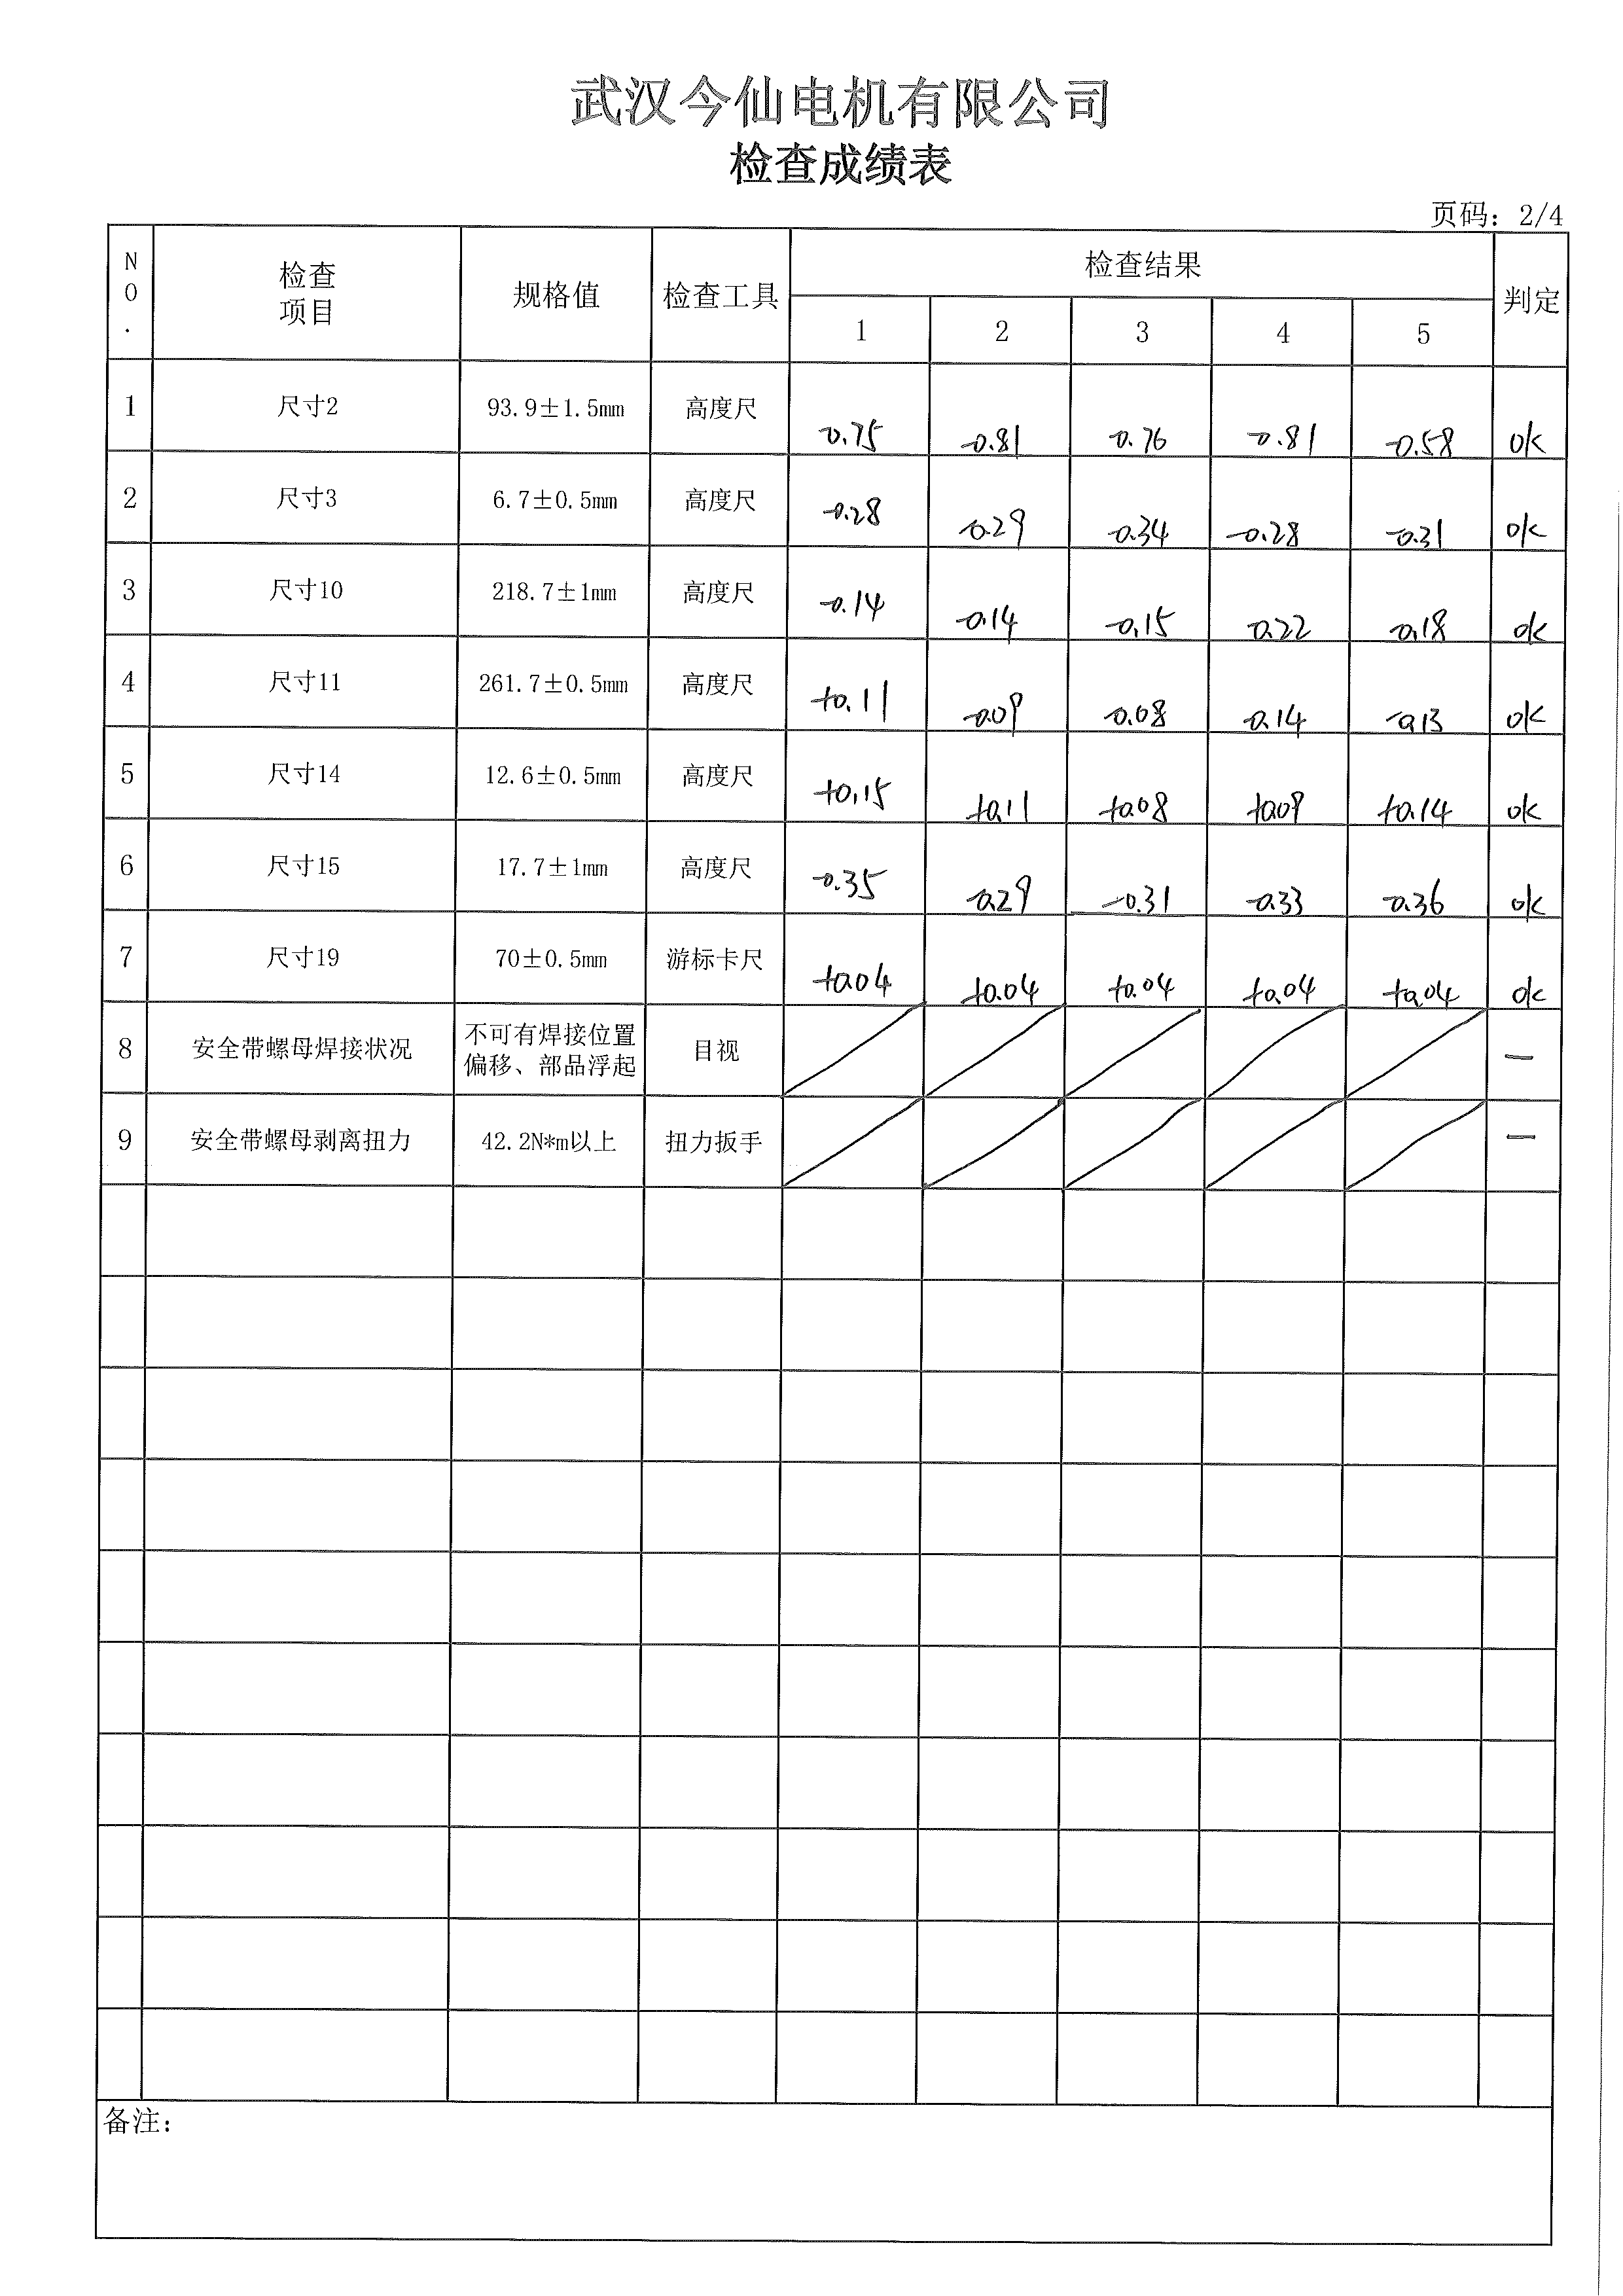 武汉今仙电机有限公司
检查成绩表
页码：2/4
NO. 检查项目 规格值 检查工具 检查结果 判定
1 2 3 4 5
1 尺寸2 93.9±1.5mm 高度尺 -0.75 -0.81 -0.76 -0.81 -0.58 ok
2 尺寸3 6.7±0.5mm 高度尺 -0.28 -0.29 -0.34 -0.28 -0.31 ok
3 尺寸10 218.7±1mm 高度尺 -0.14 -0.14 -0.15 -0.22 -0.18 ok
4 尺寸11 261.7±0.5mm 高度尺 +0.11 -0.09 -0.08 -0.14 -0.13 ok
5 尺寸14 12.6±0.5mm 高度尺 +0.15 +0.11 +0.08 +0.09 +0.14 ok
6 尺寸15 17.7±1mm 高度尺 -0.35 -0.29 -0.31 -0.33 -0.36 ok
7 尺寸19 70±0.5mm 游标卡尺 +0.04 +0.04 +0.04 +0.04 +0.04 ok
8 安全带螺母焊接状况 不可有焊接位置偏移、部品浮起 目视 —
9 安全带螺母剥离扭力 42.2N*m以上 扭力扳手 —
备注：